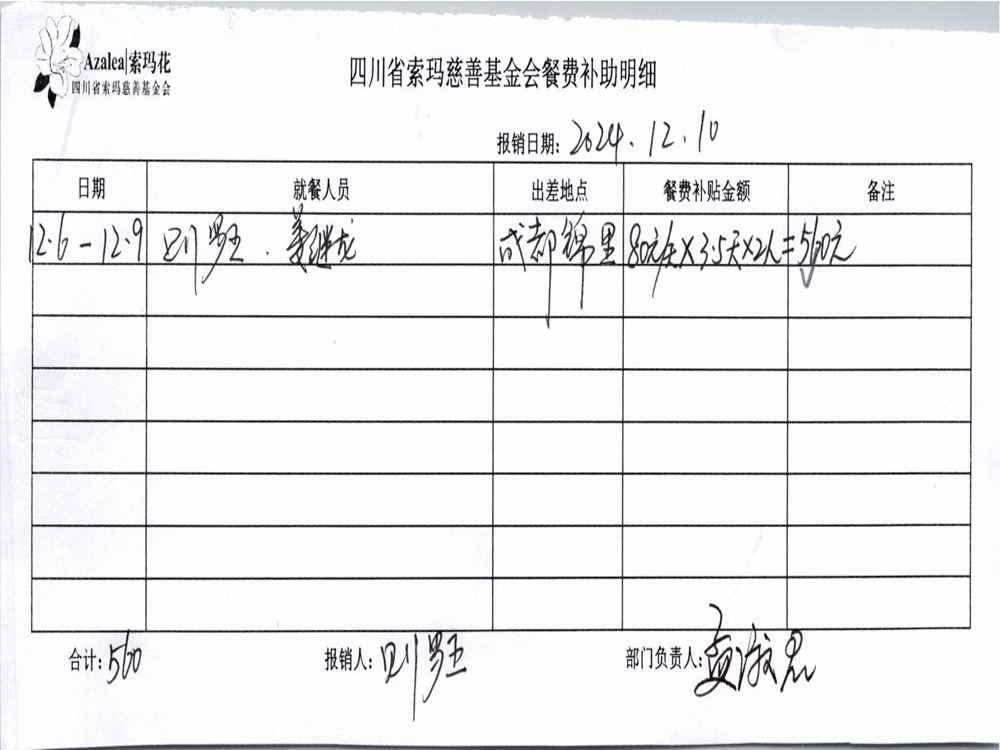 Azalea|索玛花
四川省索玛慈善基金会
四川省索玛慈善基金会餐费补助明细
报销日期: 2024.12.10
日期 就餐人员 出差地点 餐费补贴金额 备注
12.6-12.9 则罗王.姜继龙 成都锦里 80元/天×3.5天×2人=560元
合计: 560 报销人: 则罗王 部门负责人: